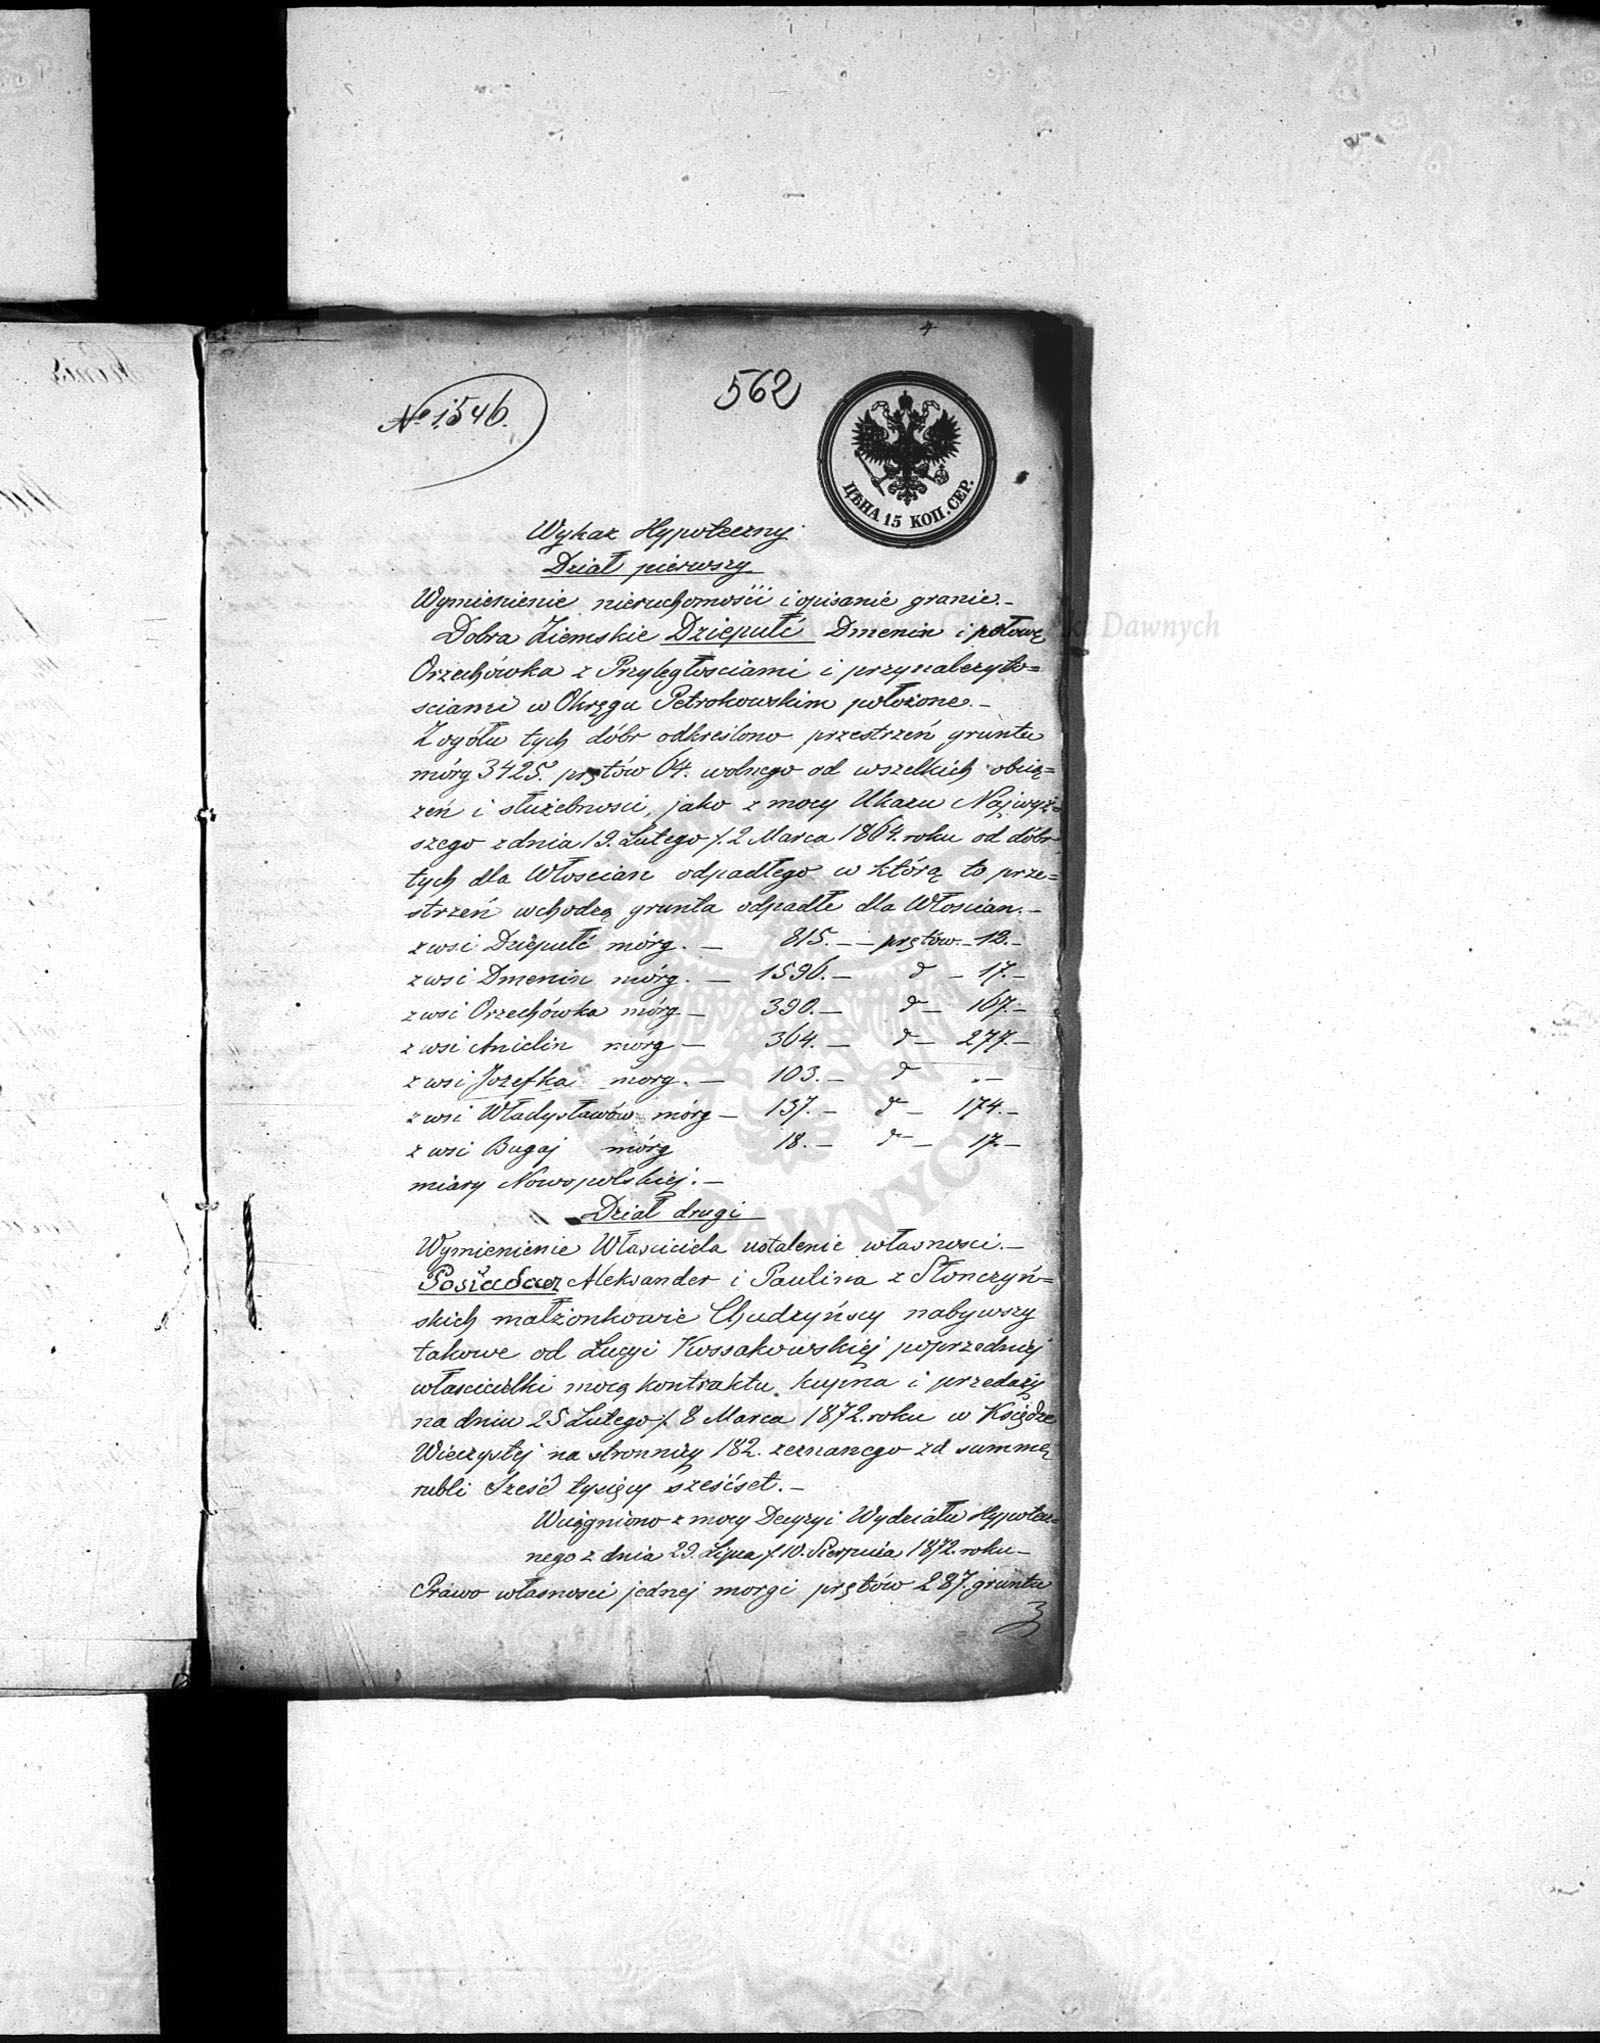 4
№ 1546.
562
ЦѢНА 15 КОП. СЕР.
Wykaz Hypoteczny
Dział pierwszy
Wymienienie nieruchomości i opisanie granic.-
Dobra Ziemskie Dziepułć Dmenin i połowę
Orzechówka z Przyległosciami i przynależyto=
sciami w Okręgu Petrokowskim położone.-
Z ogółu tych dóbr odkreślono przestrzeń gruntu
mórg 3425. prętów 64. wolnego od wszelkich obcią=
żeń i służebnosci, jako z mocy Ukazu Najwyż=
szego z dnia 19. Lutego /. 2 Marca 1864. roku od dóbr
tych dla Włoscian odpadłego w którą to prze=
strzeń wchodzą grunta odpadłe dla Włoscian.-
z wsi Dziepułć mórg. — 815. — prętów — 12.-
z wsi Dmenin mórg. — 1596. — d — 17.-
z wsi Orzechówka mórg — 390. — d — 167.-
z wsi Anielin mórg — 364. — d — 277.-
z wsi Józefka morg. — 103. — d „ —
z wsi Władysławów mórg — 137. — d — 174.-
z wsi Bugaj mórg 18. — d — 17.-
miary Nowopolskiej.-
Dział drugi
Wymienienie Własciciela ustalenie własnosci.-
Posiadacz Aleksander i Paulina z Słonczyń=
skich małżonkowie Chudzyńscy nabywszy
takowe od Łucyi Kossakowskiej poprzedniej
włascicielki mocą kontraktu kupna i przedaży
na dniu 25 Lutego /. 8 Marca 1872. roku w Księdze
Wieczystej na stronnicy 182. zeznanego za summę
rubli Sześć tysięcy sześćset.-
Wciągniono z mocy Decyzyi Wydziału Hypotecz=
nego z dnia 29. Lipca /. 10. Sierpnia 1872. roku-
Prawo własnosci jednej morgi prętów 287. gruntu